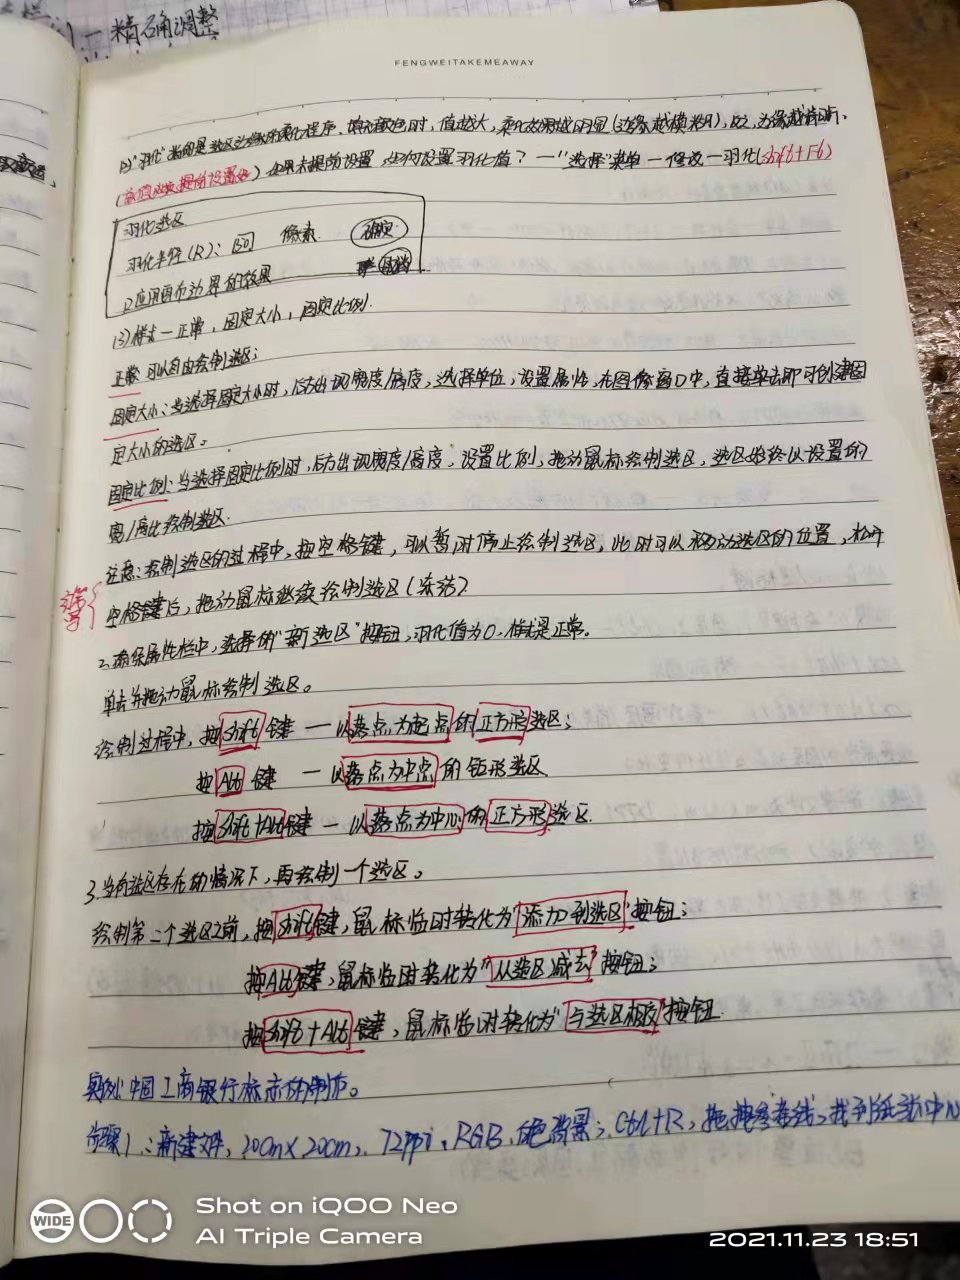 一精确调整
FENGWEITAKEMEAWAY
(2)"羽化"指的是选区边缘的柔化程序,填充颜色时,值越大,柔化效果越明显(边缘越模糊),反之,边缘越清晰。
(数值应提前设置好)如果未提前设置,如何设置羽化值?一"选择"菜单一修改一羽化(shift+F6)
羽化选区
羽化半径(R):50 像素 确定
应用画布边界的效果 取消
(3)样式一正常,固定大小,固定比例.
正常:可以自由绘制选区;
固定大小:当选择固定大小时,后方出现宽度/高度,选择单位,设置属性,在图像窗口中,直接单击即可创建固
定大小的选区。
固定比例:当选择固定比例时,后方出现宽度/高度,设置比例,拖动鼠标绘制选区,选区始终以设置的
宽/高比绘制选区.
注意:绘制选区的过程中,按空格键,可以暂时停止绘制选区,此时可以移动选区的位置,松开
空格键后,拖动鼠标继续绘制选区
2.确保属性栏中,选择的"新选区"按钮,羽化值为0,样式是正常。
单击并拖动鼠标绘制选区。
绘制过程中,按shift键 一以落点为起点的正方形选区;
按Alt键 一以落点为中点的矩形选区
按shift+Alt键一以落点为中心的正方形选区.
3.当有选区存在的情况下,再绘制一个选区。
绘制第二个选区之前,按shift键,鼠标临时转化为"添加到选区"按钮;
按Alt键,鼠标临时转化为"从选区减去"按钮;
按shift+Alt键,鼠标临时转化为"与选区相交"按钮.
实例:中国工商银行标志的制作。
步骤1:新建文件,20cm×20cm,72ppi,RGB,白色背景;Ctrl+R,拖拽参考线,找到纸张中
WIDE
Shot on iQOO Neo
AI Triple Camera
2021.11.23 18:51